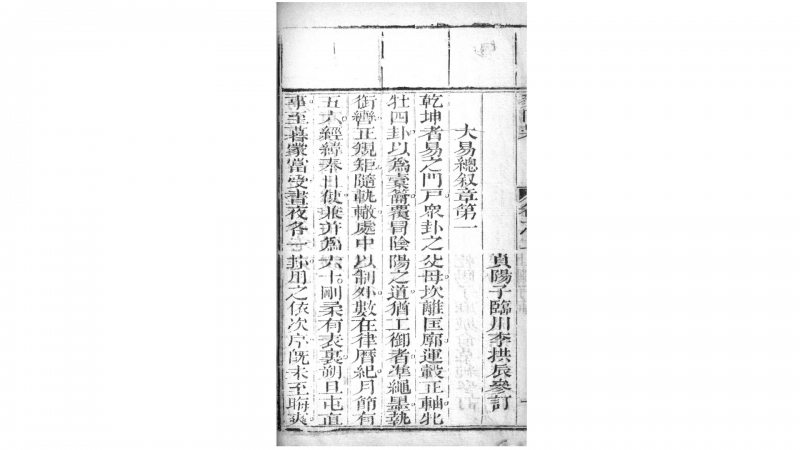 貞陽子臨川李拱辰參訂
大易總叙章第一
乾坤者易之門戸衆卦之父母坎離匡廓運轂正軸牝
牡四卦以爲槖籥覆冒陰陽之道猶工御者凖繩墨執
銜轡正規矩隨軌轍處中以制外數在律曆紀月節有
五六經緯奉日使兼并爲六十剛柔有表裏朔旦屯直
事至暮蒙當受晝夜各一卦用之依次序旣未至晦爽